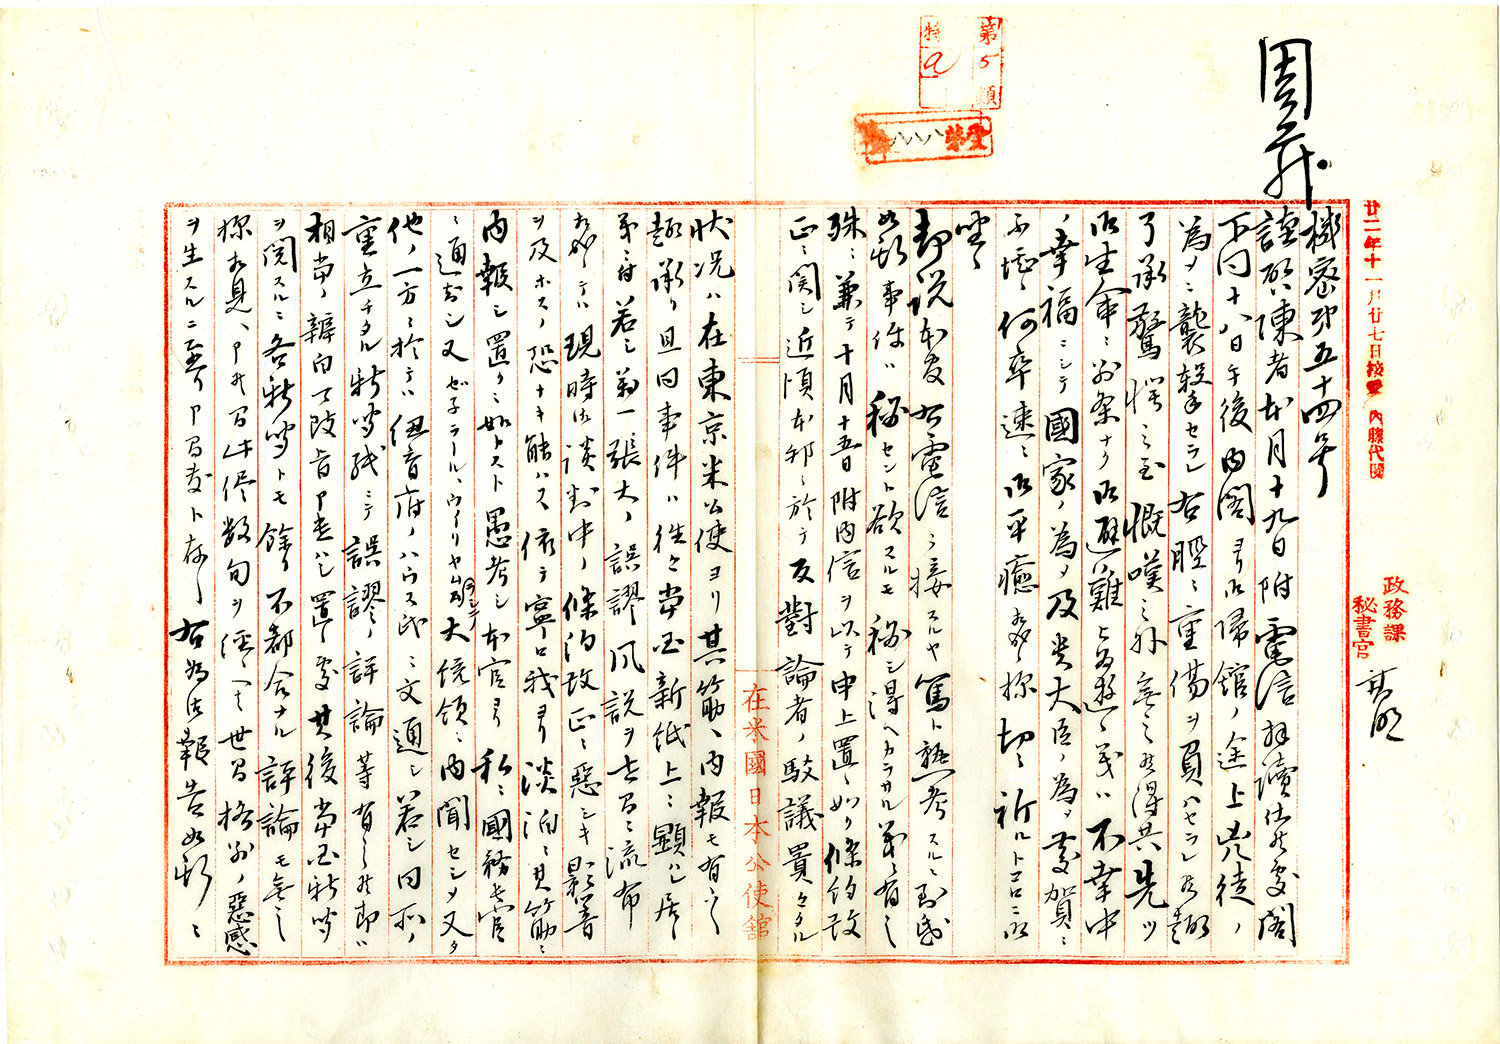 機密第五十四号
謹啓陳者本月十九日附電信拝読仕候処閣
下同十八日午後内閣ヨリ御帰館ノ途上兇徒ノ
為メニ襲撃セラレ右脛ニ重傷ヲ負ハセラレ候趣
了承驚愕之至慨嘆之外無之候得共先ツ
御生命ニ別条ナク御避難被遊候義ハ不幸中
ノ幸福ニシテ國家ノ為メ及貴大臣ノ為メ慶賀ニ
不堪候何卒速ニ御平癒相成候様切ニ祈ルトコロニ御
坐候
却説本官右電信ニ接スルヤ篤ト熟考スルニ到底
如斯事件ハ秘セント欲スルモ秘シ得ヘカラサル義ニ有之
殊ニ兼テ十月十五日附内信ヲ以テ申上置候如ク條約改
正ニ関シ近頃本邦ニ於テ反對論者ノ駁議囂々タル
状況ハ在東京米公使ヨリ其筋ヘ内報モ有之
趣承リ且同事件ハ往々当国新紙上ニ顕ハレ居
候義ニ付若シ萬一張大ノ誤謬風説ヲ世間ニ流布
相成候テハ現時御談判中ノ條約改正ニ悪シキ影響
ヲ及ホスノ恐ナキ能ハス依テ寧ロ我ヨリ淡泊ニ其筋ニ
内報シ置クニ如カスト愚考シ本官ヨリ私ニ國務長官
ニ通知シ又ゼ子ラール、ウイリヤムス
大統領ニ内聞セシメ又タ
他ノ一方ニ於テハ紐育府ノハウス氏ニ文通シ若シ同府ノ
重立チタル新聞紙ニテ誤謬ノ評論等有之候節ハ
相当ノ辨白可致旨申遣ハシ置候処其後当国新聞
ヲ閲スルニ各新聞トモ餘リ不都合ナル評論モ無之
様相見ヘ申候間此儘数旬ヲ経ヘ世間格別ノ悪感
ヲ生スルニ至リ申間敷ト存候右為御報告如斯ニ
在米國日本公使館
廿二年十一月廿七日接受
内勝代
政務課
秘書官
第5類
特
a